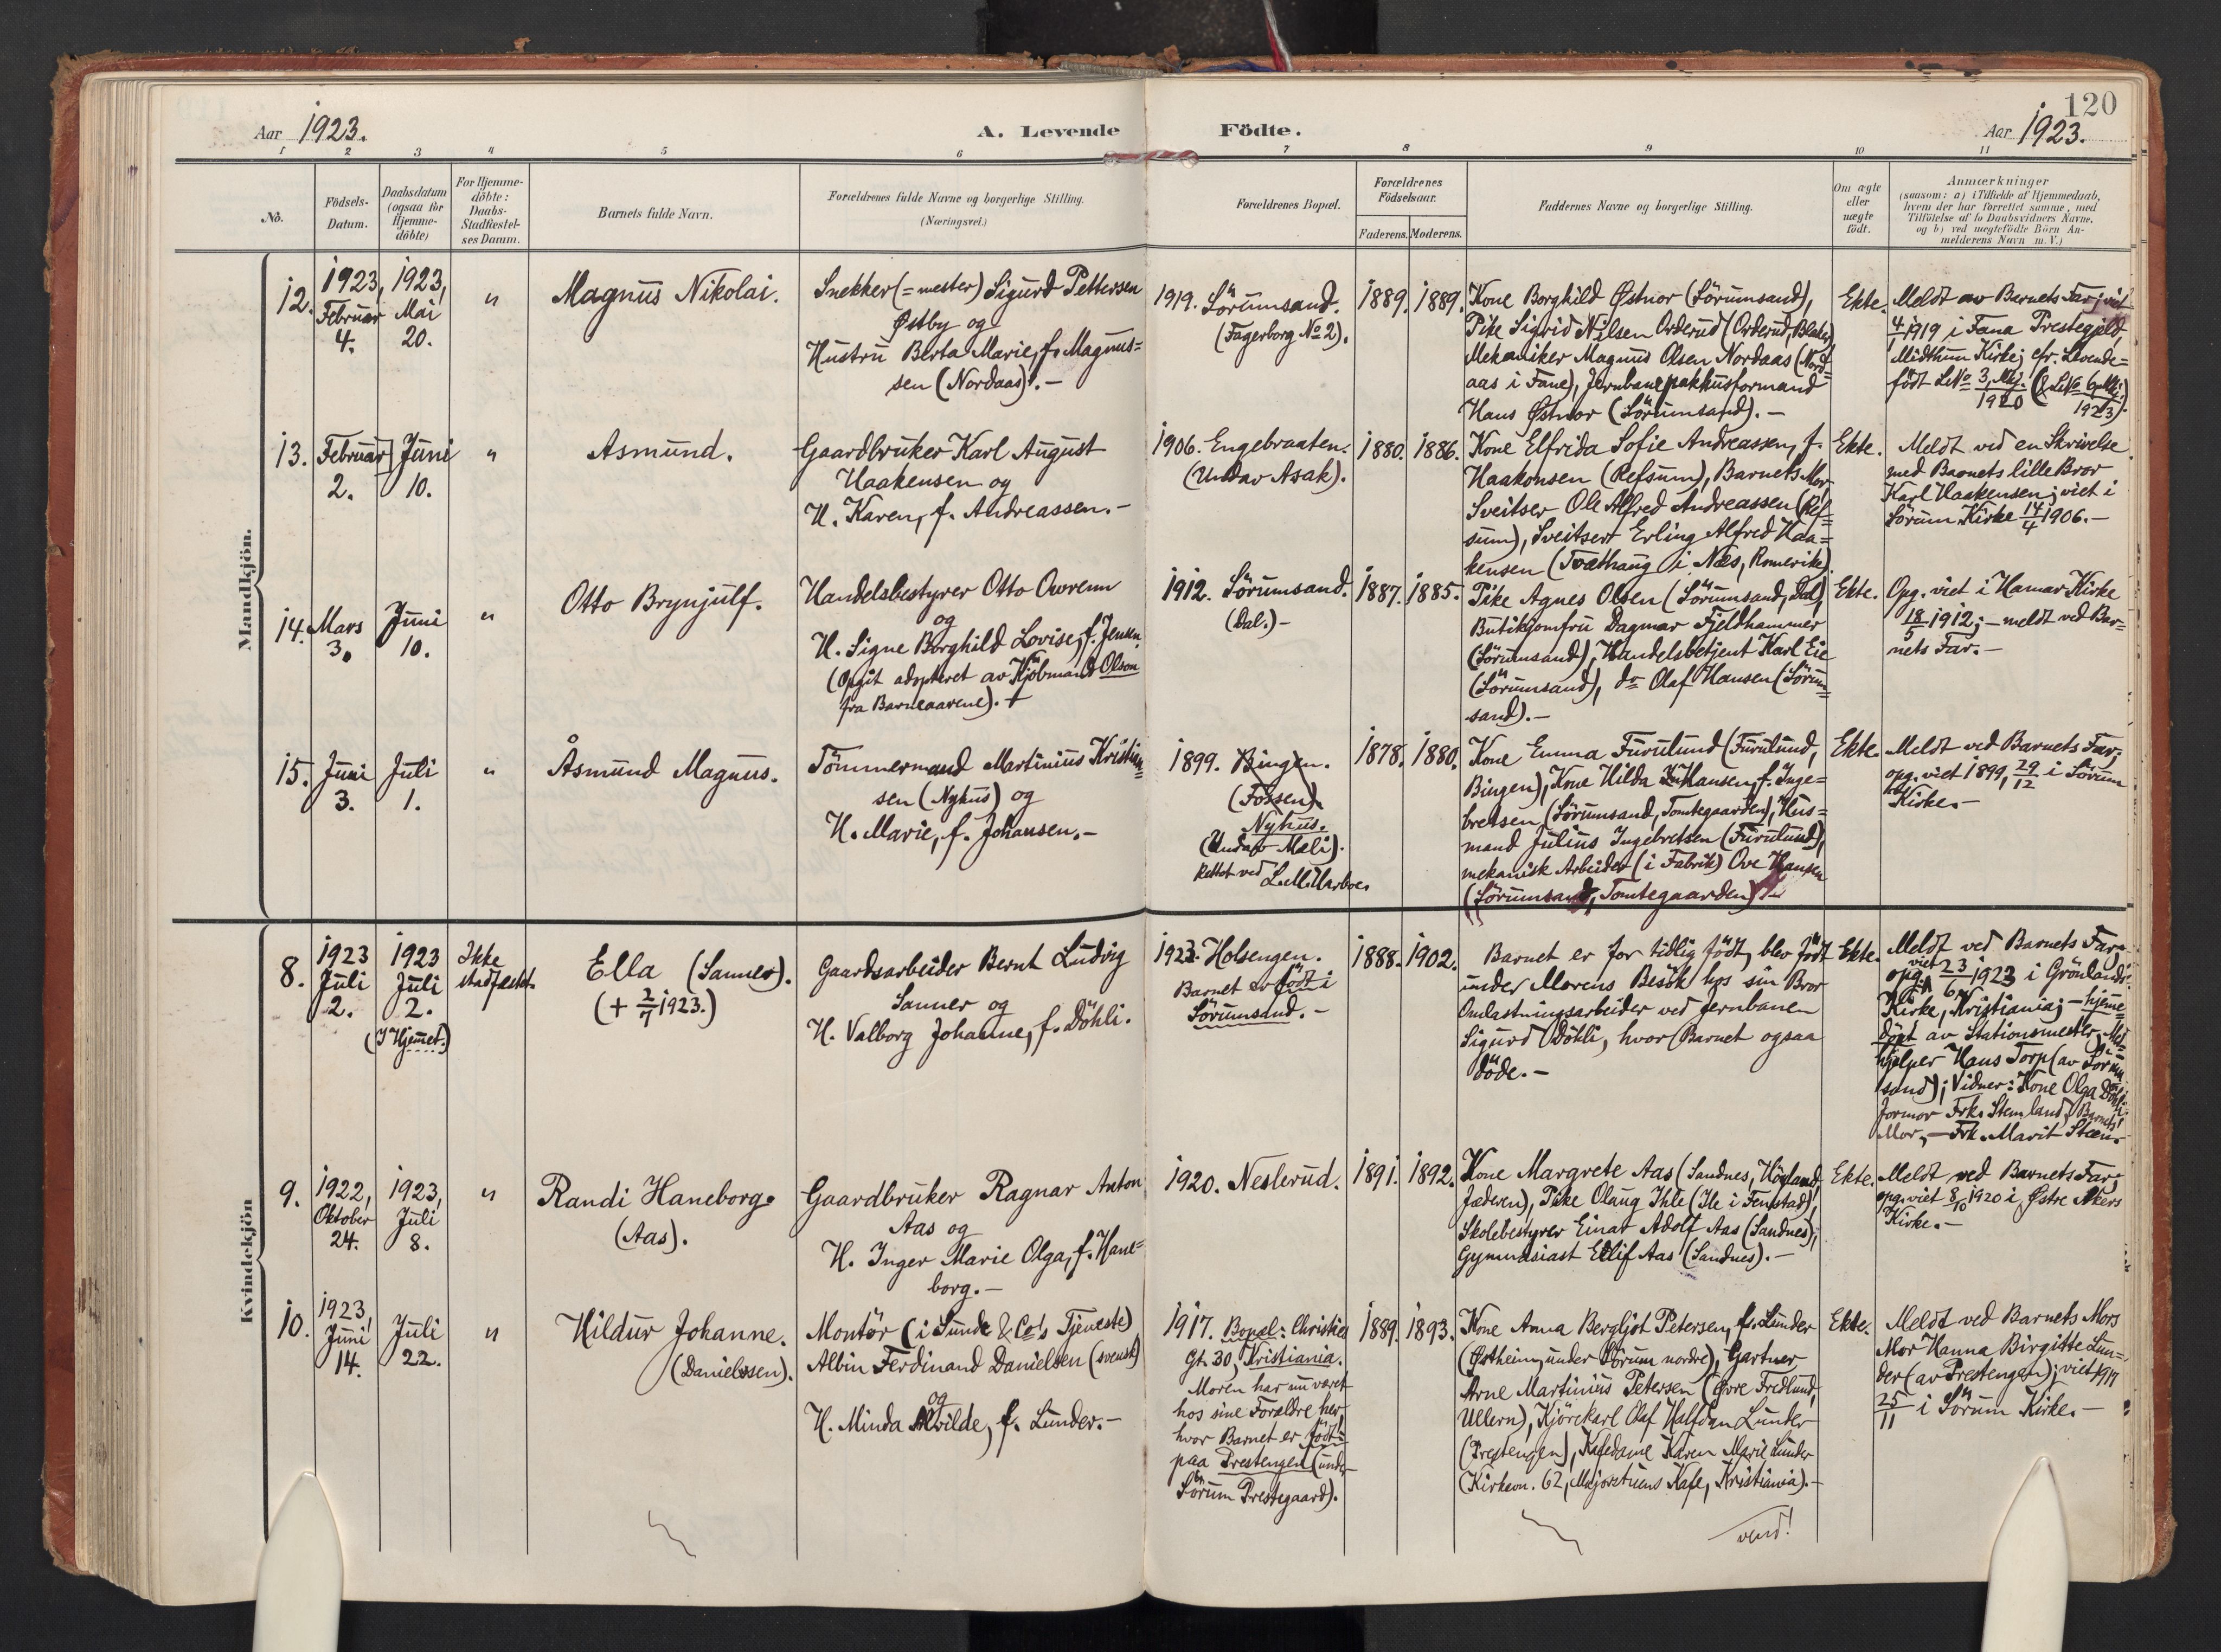 120
Aar 1923.
A. Levende Födte.
Aar 1923.
1 2 3 4 5 6 7 8 9 10 11
No.
Födsels-
Datum.
Daabsdatum
(ogsaa for
Hjemme-
döbte)
For Hjemme-
döbte:
Daabs-
Stadfæstel-
ses Datum.
Barnets fulde Navn.
Forældrenes fulde Navne og borgerlige Stilling.
(Næringsvei.)
Forældrenes Bopæl.
Forældrenes
Födselsaar.
Faderens. Moderens.
Faddernes Navne og borgerlige Stilling.
Om ægte
eller
uægte
födt.
Anmærkninger
(saasom: a) i Tilfælde af Hjemmedaab,
hvem der har forrettet samme, med
Tilföielse af to Daabsvidners Navne,
og b) ved uægtefödte Börn An-
melderens Navn m. V.)
Mandkjön.
12.
1923,
Februar
4.
1923,
Mai
20.
"
Magnus Nikolai.
Snekker (=mester) Sigurd Pettersen
Østby og
Hustru Berta Marie, f. Magnus=
sen (Nordaas). -
1919. Sörumsand.
(Fagerborg No 2).
1889.
1889.
Kone Borghild Østnor (Sörumsand),
Pike Sigrid Nilsen Orderud (Orderud, Blaker)
Mekaniker Magnus Olsen Nordaas (Nord=
aas i Fane), Jernbanepakhusformand
Hans Østnor (Sörumsand). -
Ekte.
Meldt av Barnets Far; viet
1919 i Fana Prestegjeld,
Midthun Kirke; cfr. Levende=
födt LNo 3, Mkj. 1920 (& LNo 6, Mkj. 1923).
13.
Februar
2.
Juni
10.
"
Asmund.
Gaardbruker Karl August
Haakensen og
H. Karen, f. Andreassen. -
1906. Engebraaten.
(Undav Asak).
1880.
1886.
Kone Elfrida Sofie Andreassen, f.
Haakonsen (Refsum), Barnets Mor,
Sveitser Ole Alfred Andreassen (Ref=
sum), Sveitser Erling Alfred Haa=
kensen (Tvethaug i Næs, Romerike).
Ekte.
Meldt ved en Skrivelse
med Barnets lille Bror
Karl Haakensen; viet i
Sörum Kirke 14/4 1906. -
14.
Mars
3.
Juni
10.
"
Otto Brynjulf.
Handelsbestyrer Otto Owrenn
og
H. Signe Borghild Lovise, f. Jensen
(Opgit adopteret av Kjöbmand Olson
fra Barneaarene). +
1912. Sörumsand.
(Dal.) -
1887.
1885.
Pike Agnes Olsen (Sörumsand, Dal),
Butikjomfru Dagmar Fjeldhammer
(Sörumsand), Handelsbetjent Karl Eie
(Sörumsand), do Olaf Hansen (Sörum=
sand). -
Ekte.
Opg. viet i Hamar Kirke
18/5 1912; - meldt ved Bar=
nets Far. -
15.
Juni
3.
Juli
1.
"
Åsmund Magnus.
Tömmermand Martinius Kristian=
sen (Nyhus) og
H. Marie, f. Johansen. -
1899. Bingen.
(Fossen).
Nyhus.
(Undav Mæli).
Rettet ved
1878.
1880.
Kone Emma Furulund (Furulund,
Bingen), Kone Hilda Hansen, f. Inge=
bretsen (Sörumsand, Tomtegaarden), Hus=
mand Julius Ingebretsen (Furulund),
mekanisk Arbeider (i Fabrik) Ove Hansen
(Sörumsand, Tomtegaarden). -
Ekte.
Meldt ved Barnets Far,
opg. viet 1899, 29/12 i Sörum
Kirke. -
Kvindekjön
8.
1923
Juli
2.
1923
Juli
2.
(I Hjemmet.)
Ikke
stadfæstet.
Ella (Sanner).
(+ 2/7 1923.)
Gaardsarbeider Bernt Ludvig
Sanner og
H. Valborg Johanne, f. Döhli.
1923. Holsengen.
Barnet er födt i
Sörumsand. -
1888.
1902.
Barnet er for tidlig födt, blev födt
under Morens Besök hos sin Bror
Omlastningsarbeider ved Jernbanen
Sigurd Döhli, hvor Barnet ogsaa
döde. -
Ekte.
Meldt ved Barnets Far,
opg. viet 23/6 1923 i Grönlands
Kirke, Kristiania; - hjemme=
döpt av Stationsmester, Med=
hjelper Hans Torp (av Sörum
sand); Vidner: Kone Olga Döhli,
Jormor Frk. Stemland, Barnets
Mor, - Frk. Marit Steen. -
9.
1922,
Oktober
24.
1923,
Juli
8.
"
Randi Haneborg.
(Aas).
Gaardbruker Ragnar Anton
Aas og
H. Inger Marie Olga, f. Hane=
borg. -
1920. Neslerud.
1891.
1892.
Kone Margrete Aas (Sandnes, Höyland,
Jæderen), Pike Olaug Ihle (Ile i Fenstad),
Skolebestyrer Einar Adolf Aas (Sandnes),
Gymnasiast Eilif Aas (Sandnes). -
Ekte.
Meldt ved Barnets Far,
opg. viet 8/10 1920 i Østre Akers
Kirke. -
10.
1923,
Juni
14.
Juli
22.
"
Hildur Johanne.
(Danielssen).
Montör (i Sunde & Co's Tjeneste)
Albin Ferdinand Danielsen (svensk)
og
H. Minda Alvilde, f. Lunder. -
1917. Bopel: Christies
Gt. 30, Kristiania.
Moren har nu været
hos sine Forældre her,
hvor Barnet er födt:
paa Prestengen (under
Sörum Prestegaard).
1889.
1893.
Kone Anna Bergljot Petersen, f. Lunder
(Østheim, under Sörum nordre), Gartner
Arne Martinius Petersen (Övre Fredlund,
Ullern), Kjörekarl Olaf Halfdan Lunder
(Prestengen), Kafedame Karen Marie Lunder
(Kirkevn. 62, Majorstuens Kafe, Kristiania). -
Ekte.
Meldt ved Barnets Mors
Mor Hanna Birgitte Lun=
der (av Prestengen); viet 1917
25/11 i Sörum Kirke. -
vend!